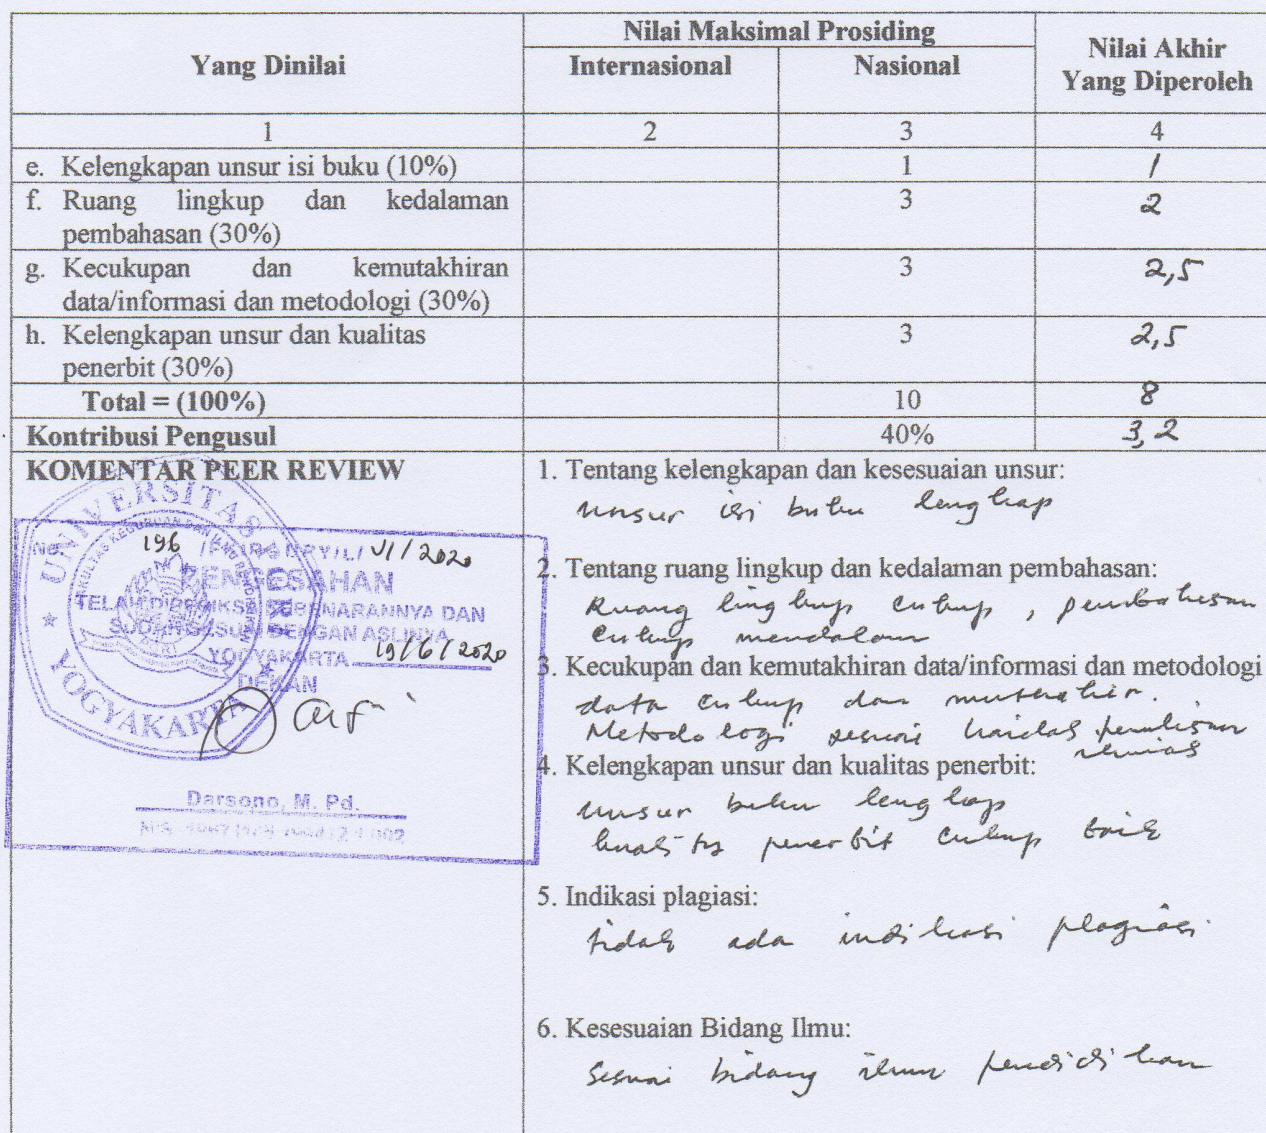 Yang Dinilai
Nilai Maksimal Prosiding
Internasional
Nasional
Nilai Akhir
Yang Diperoleh
1
2
3
4
e. Kelengkapan unsur isi buku (10%)
1
1
f. Ruang lingkup dan kedalaman
pembahasan (30%)
3
2
g. Kecukupan dan kemutakhiran
data/informasi dan metodologi (30%)
3
2,5
h. Kelengkapan unsur dan kualitas
penerbit (30%)
3
2,5
Total = (100%)
10
8
Kontribusi Pengusul
40%
3,2
KOMENTAR PEER REVIEW
UNIVERSITAS
YOGYAKARTA
No. 196 VI/2020
PENGESAHAN
TELAH DIPERIKSA KEBENARANNYA DAN
SUDAH SESUAI DENGAN ASLINYA
YOGYAKARTA 19/6/2020
DEKAN
Darsono, M. Pd.
1. Tentang kelengkapan dan kesesuaian unsur:
unsur isi buku lengkap
2. Tentang ruang lingkup dan kedalaman pembahasan:
Ruang lingkup cukup, pembahasan
cukup mendalam
3. Kecukupan dan kemutakhiran data/informasi dan metodologi
data cukup dan mutakhir.
Metodologi sesuai kaidah penulisan
ilmiah
4. Kelengkapan unsur dan kualitas penerbit:
unsur buku lengkap
kualitas penerbit cukup baik
5. Indikasi plagiasi:
tidak ada indikasi plagiasi
6. Kesesuaian Bidang Ilmu:
Sesuai bidang ilmu pendidikan